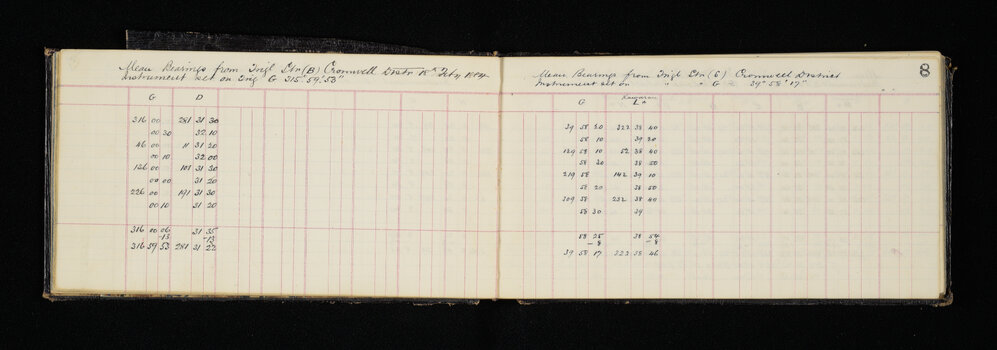 Mean Bearings from Trigl Stn (B) Cromwell Distr 15th Feby
Instrument set on Trig G 315° 59' 53"
G D
316 00 281 31 30
00 30 32 10
46 00 11 31 20
00 10 32 00
136 00 101 31 30
00 00 31 20
226 00 191 31 30
00 10 31 20
316 00 06 31 35
-13 -13
316 59 53 281 31 22
8
Mean Bearings from Trigl Stn (E) Cromwell District
Instrument set on " " G = 39° 58' 17"
Kawarau
G L
39 58 20 322 38 40
58 10 39 20
129 58 10 52 38 40
58 30 38 50
219 58 142 39 10
58 20 38 50
309 58 232 38 40
58 30 39
58 25 38 54
-8 -8
39 58 17 322 38 46